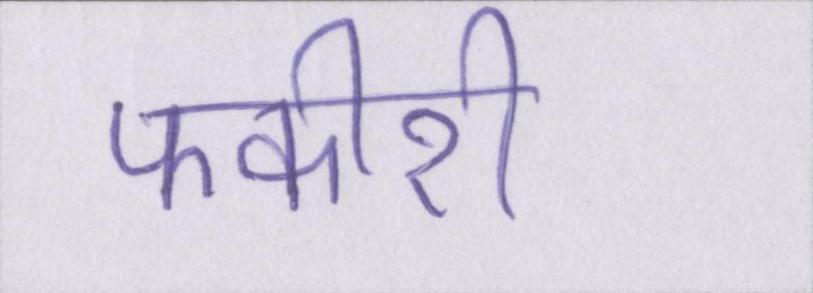 फकीरी